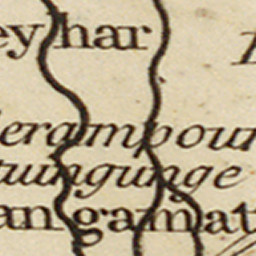 eyhar
erampour
tungunge
angamatt